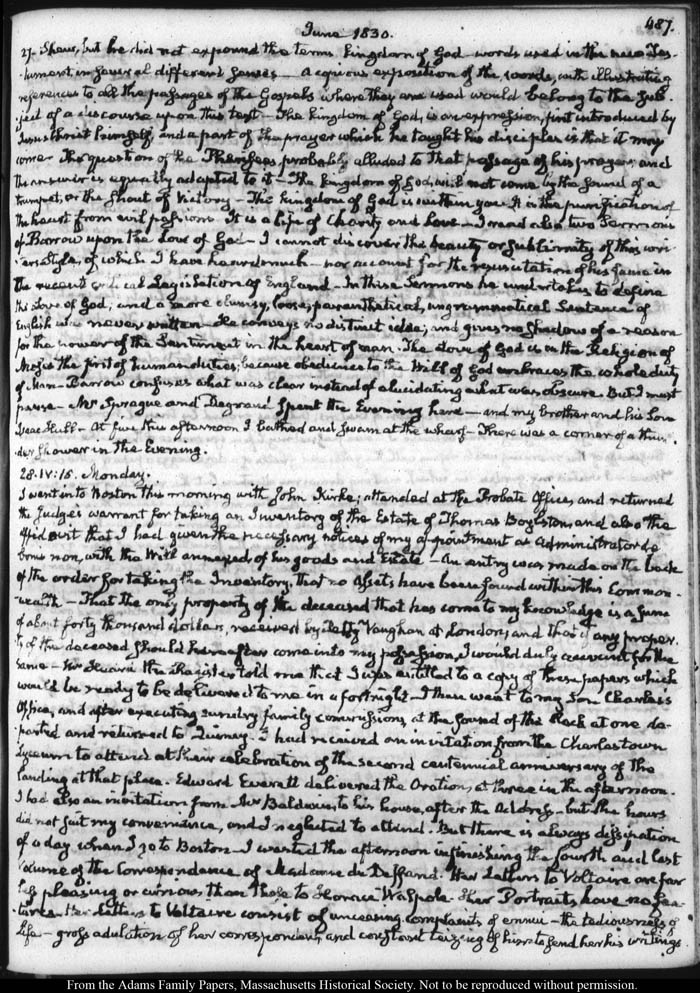 June 1830.
487.
27. Shew, but he did not expound the terms kingdom of God words used in the new Tes-
-tament, in several different senses — a copious exposition of the words, with illustrative
references to all the passages of the Gospels where they are used would belong to the sub-
ject of a discourse upon this text — The kingdom of God, is an expression, first introduced by
Jesus Christ himself, and a part of the prayer which he taught his disciples is that it may
come. The question of the Pharisees probably alluded to that passage of his prayer; and
the answer is equally adapted to it — The kingdom of God will not come by the sound of a
trumpet, or the shout of Victory — The kingdom of God is within you. It is the purification of
the heart from evil passions. It is a life of Charity and Love — I read also two Sermons
of Barrow upon the Love of God — I cannot discover the beauty or sublimity of this wri-
-ter's style, of which I have heard much — nor account for the resuscitation of his fame in
the recent Legislation of England — In these Sermons he undertakes to define
the Love of God; and a more clumsy, loose, parenthetical, ungrammatical Sentence of
English was never written — He conveys no distinct idea; and gives no shadow of a reason
for the power of the Sentiment in the heart of man. The Love of God is in the Religion of
Moses the first of human duties; because obedience to the Will of God embraces the whole duty
of Man — Barrow confuses what was clear instead of elucidating what was obscure. But I must
pause — Mr Sprague and Degrand spent the Evening here — and my brother and his Son
Isaac Hull — At five this afternoon I bathed and swam at the wharf — There was a corner of a thun-
der shower in the Evening.
28. IV:15. Monday.
I went into Boston this morning with John Kirke; attended at the Probate Office, and returned
the Judge's warrant for taking an Inventory of the Estate of Thomas Boylston, and also the
Affidavit that I had given the necessary notices of my appointment as Administrator de
bonis non, with the Will annexed of his goods and Estate — An entry was made on the back
of the order for taking the Inventory, that no Assets have been found within this Common-
-wealth — That the only property of the deceased that has come to my knowledge is a sum
of about forty thousand dollars, received by Petty Vaughan at London; and that if any proper-
ty of the deceased should hereafter come into my possession, I would duly account for the
same — the Register told me that I was entitled to a copy of these papers which
would be ready to be delivered to me in a fortnight — I then went to my Son Charles's
Office, and after executing sundry family commissions, at the sound of the Clock at one de-
-parted and returned to Quincy. I had received an invitation from the Charlestown
Lyceum to attend at their celebration of the second centennial anniversary of the
landing at that place. Edward Everett delivered the Oration, at three in the afternoon.
I had also an invitation from Mr Baldwin to his house, after the Address — but the hours
did not suit my convenience, and I neglected to attend. But there is always dissipation
of a day when I go to Boston — I wasted the afternoon in finishing the fourth and last
volume of the Correspondence of Madame du Deffand. Her Letters to Voltaire are far
less pleasing or curious than those to Horace Walpole. Her Portraits have no fea-
-tures. Her Letters to Voltaire consist of unceasing complaints of ennui — the tediousness of
life — gross adulation of her correspondent, and constant teizing of him to send her his writings
From the Adams Family Papers, Massachusetts Historical Society. Not to be reproduced without permission.